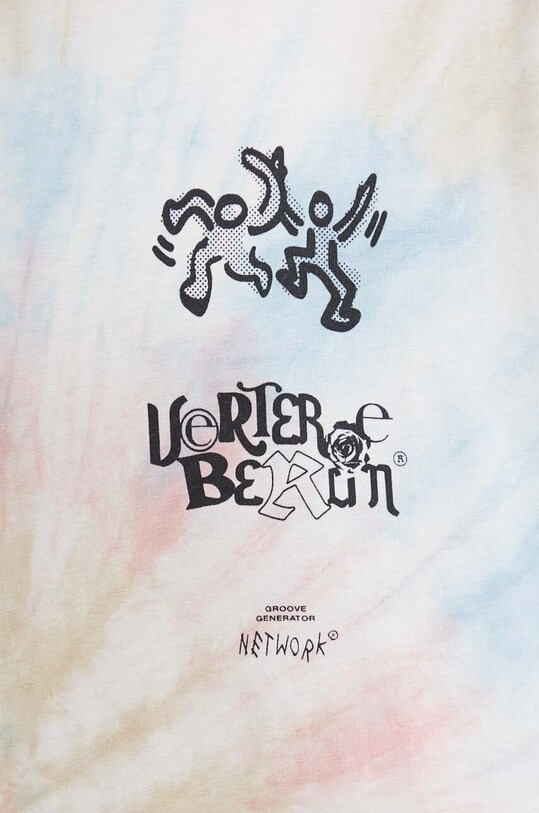 VeRTERe
BeRlin®
GROOVE
GENERATOR
NETWORK®